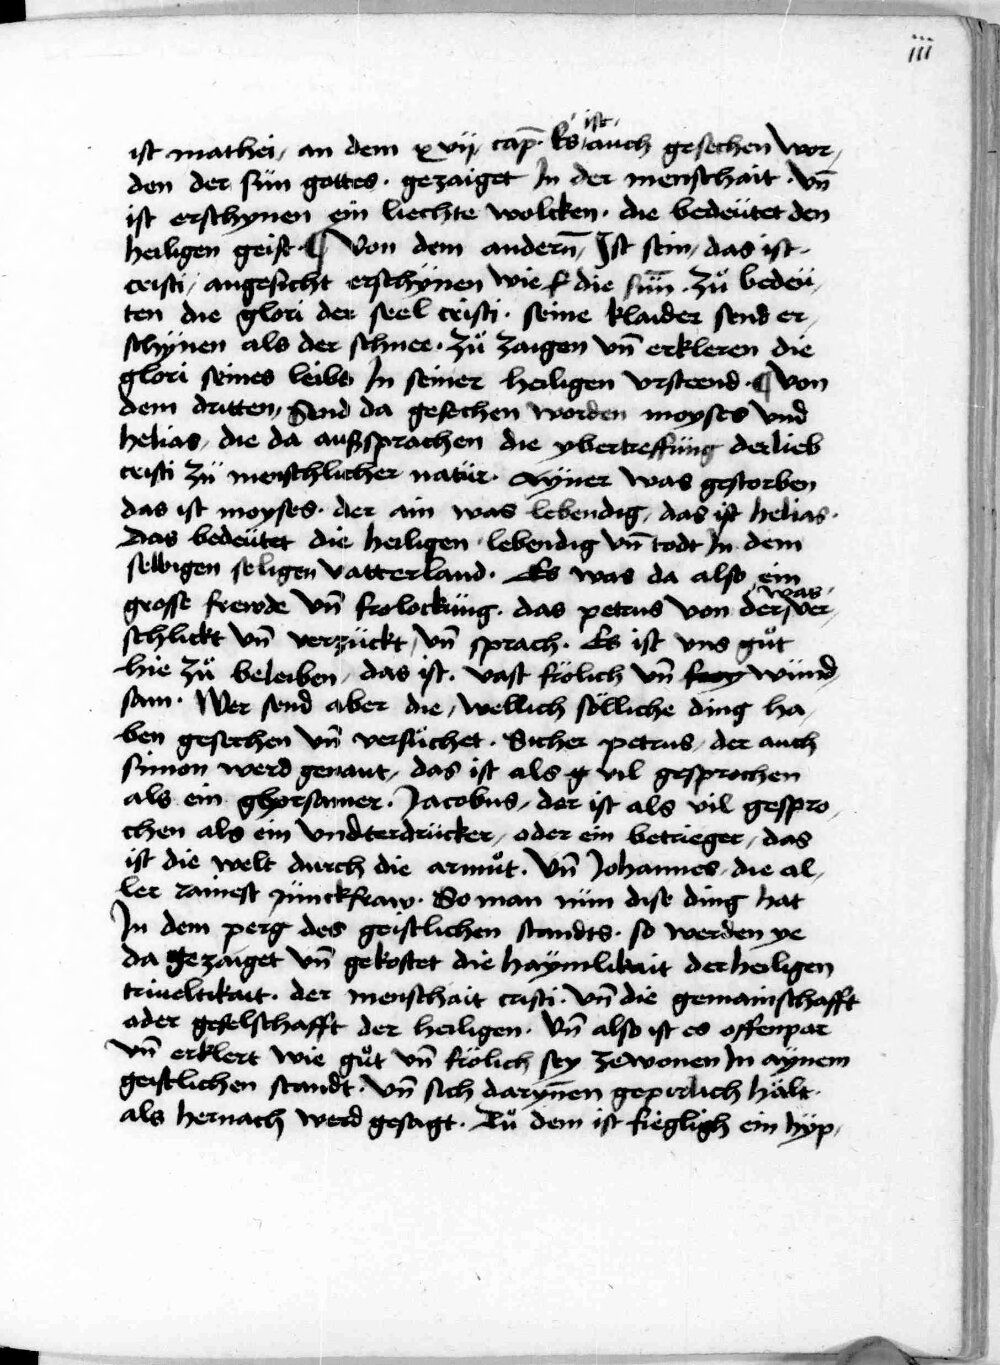 iii
ist mathei, an dem xvij cap̄. Es ist auch gesechen wor,
den der sün gottes. gezaiget In der menschait. vn̄
ist erschynen ein liechte wolcken. die bedeütet den
heiligen geist. ¶ Von dem andern̄, Ist sein, das ist.
cristi, angesicht erschÿnen wie die sün̄. Zů bedeü,
ten die glori der seel cristi. seine klaider send er,
schÿnen als der schnee. Zů zaigen vn̄ erkleren die
glori seines leibs In seiner heiligen vrsteend. ¶ Von
dem dritten, Send da gesechen worden moyses vnd
helias, die da außsprachen die ybertreffüng der lieb
cristi zü menschlicher natür. Aÿner was gestorben
das ist moyses. der ain was lebendig, das ist helias.
Das bedeütet die heiligen lebendig vn̄ todt In dem
selbigen seligen vatterland. Es was da also ein
grosse frewde vn̄ frolocküng. das petrus von der was ver,
schlickt vn̄ verzückt, vn̄ sprach. Es ist vns gůt
hie zů beleiben, das ist. vast frölich vn̄ frey wünd,
sam. Wer send aber die, wellich sölliche ding ha,
ben gesechen vn̄ versüchet. Sicher petrus, der auch
simon werd genant, das ist als g vil gesprochen
als ein ghorsamer. Jacobus, der ist als vil gespro,
chen als ein vndterdrücker, oder ein betrieger, das
ist die welt durch die armůt. Vn̄ Johannes, die al,
ler rainest jünckfraw. So man nün dise ding hat
In dem perg des geistlichen standts. so werden ye
da gezaiget vn̄ gekostet die haÿmlikait der heiligen
triueltikait. der menschait cristi. vn̄ die gemainschafft
oder geselschafft der heiligen. Vn̄ also ist es offenpar
vn̄ erklert wie gůt vn̄ frölich sey zewonen In aynem
geistlichen standt. vn̄ sich daryn̄en gepirlich hält.
als hernach werd gesagt. Zů dem ist fiegligh ein hÿp,